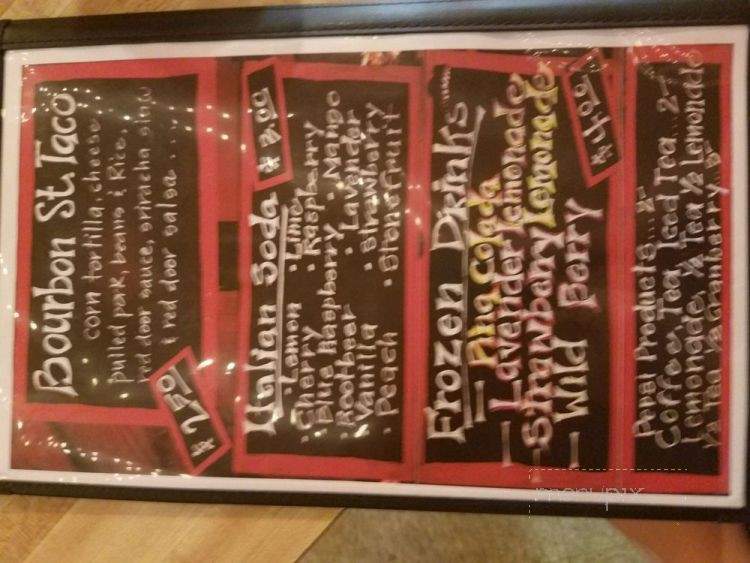 Bourbon St. Taco
corn tortilla, cheese
pulled pork, beans & Rice,
red door sauce, sriracha slaw
& red door salsa ....
$2.50
Italian Soda $3.00
· Lemon · Lime
· Cherry · Raspberry
· Blue Raspberry · Mango
· Rootbeer · Lavender
· Vanilla · Strawberry
· Peach · Stonefruit
Frozen Drinks ... $4.00
- Pina Colada
- Lavender lemonade
- Strawberry Lemonade
- Wild Berry
Pepsi Products... 2-
Coffee, Tea, Iced Tea... 2-
Lemonade, ½ Tea ½ Lemonade
½ Tea ½ Cranberry...
menupix